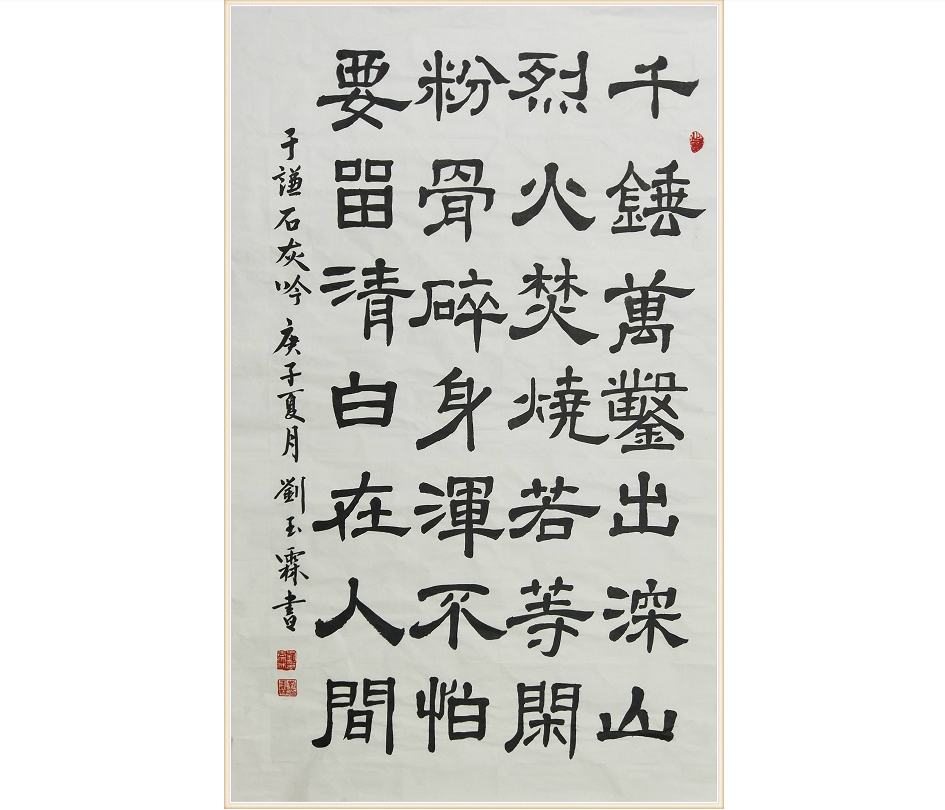 千錘萬鑿出深山
烈火焚燒若等閑
粉骨碎身渾不怕
要留清白在人間
于謙石灰吟 庚子夏月 劉玉霖書